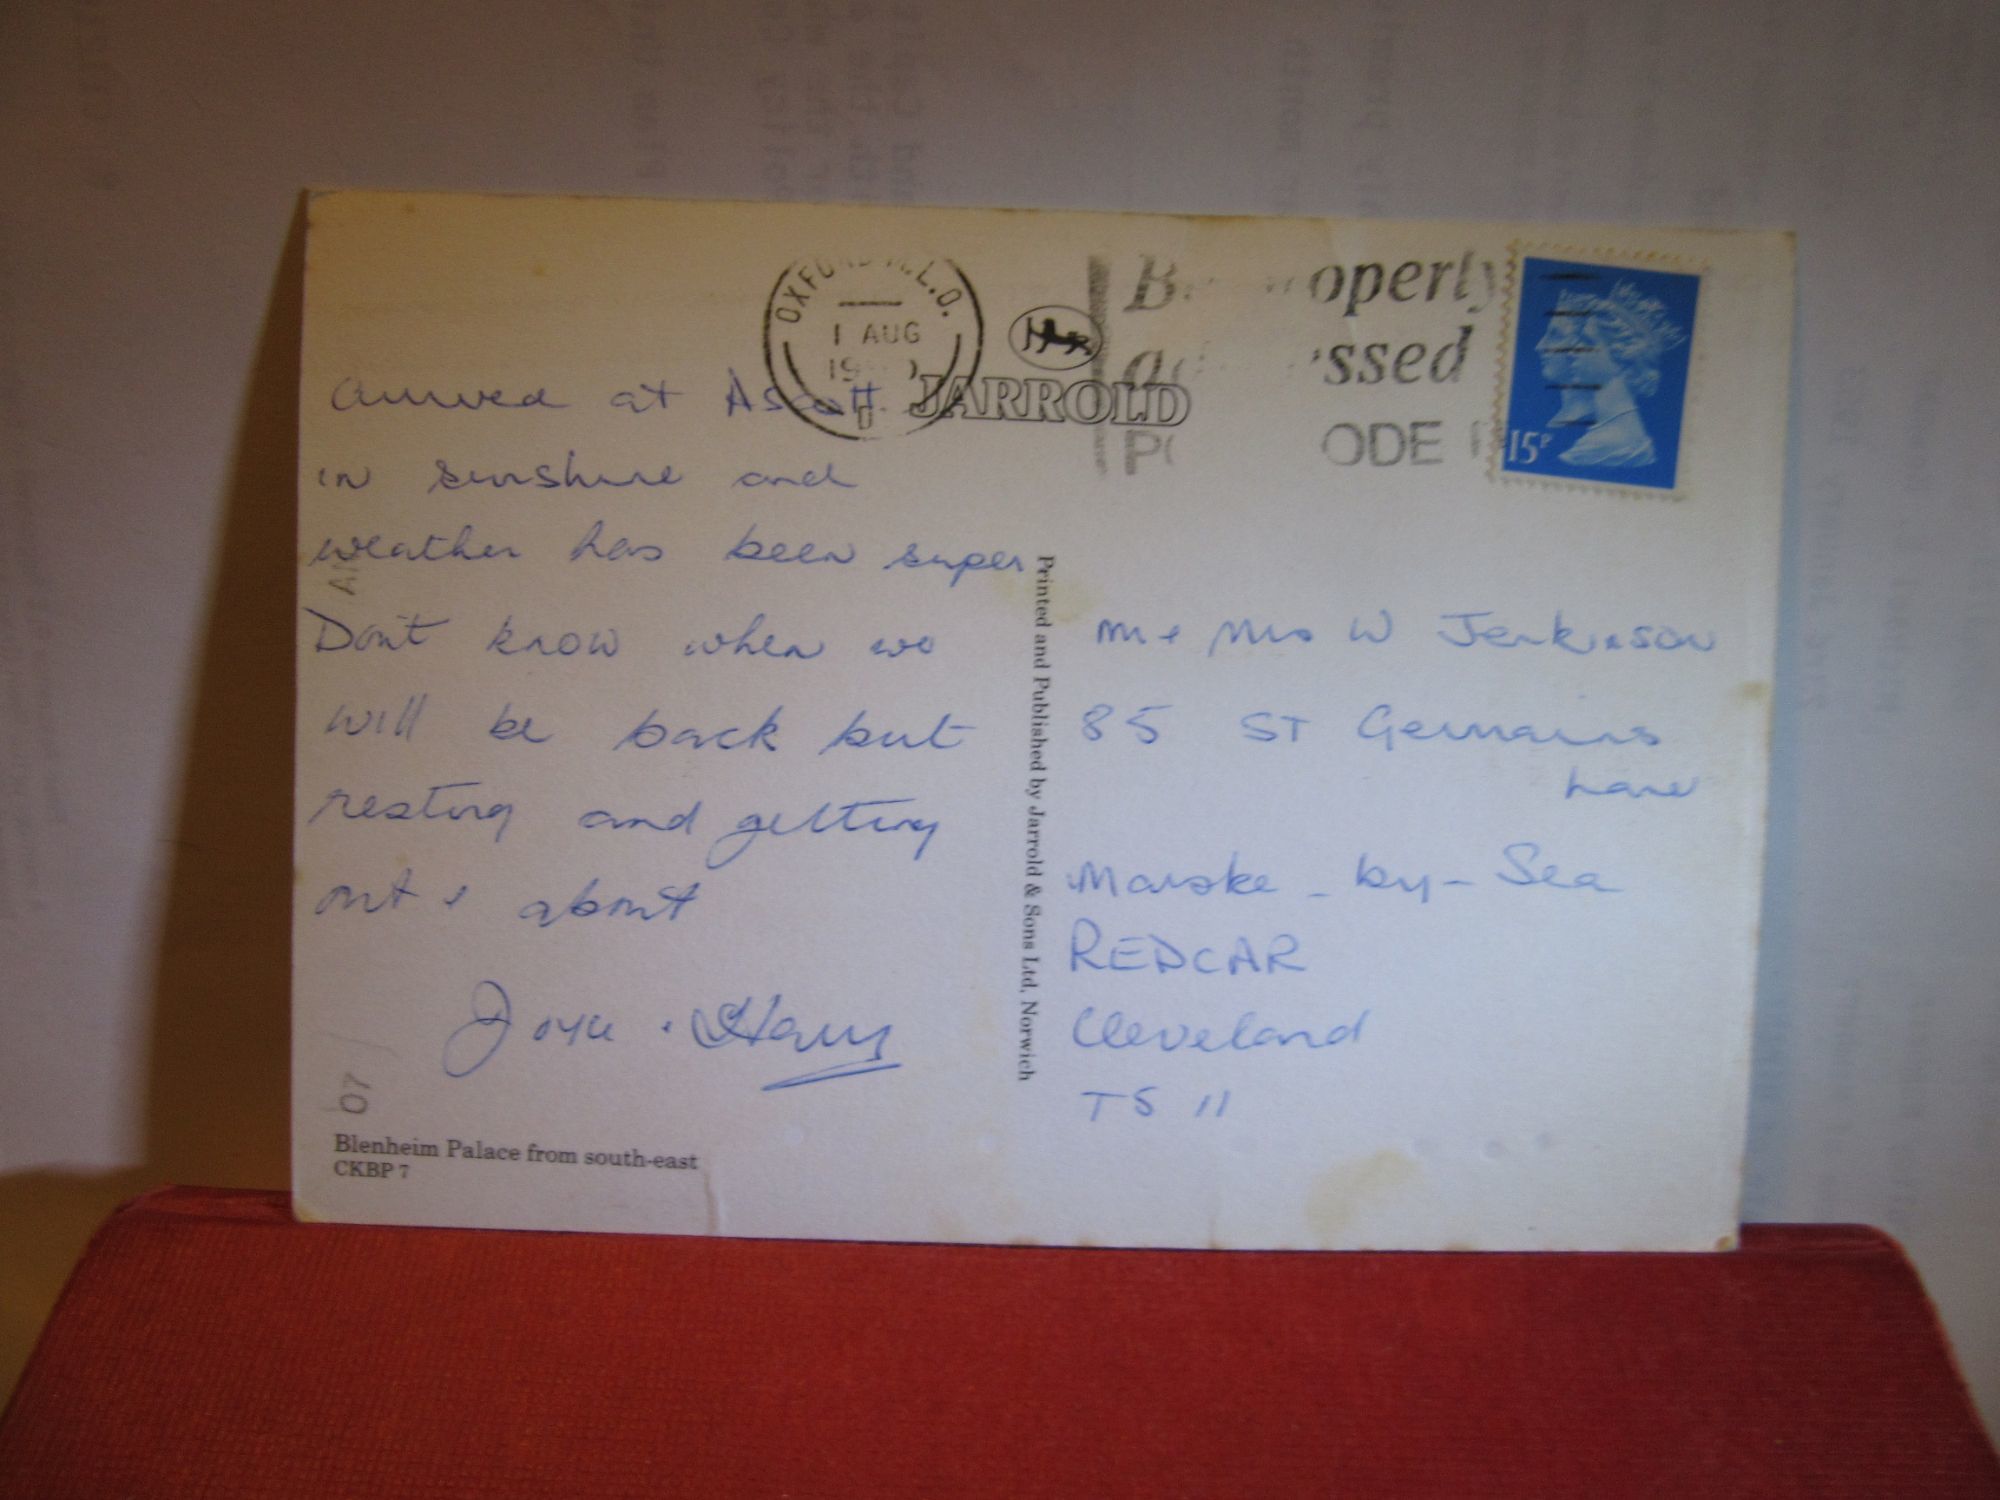 OXFORD M.L.O.
1 AUG
19
JARROLD
operly
ssed
ODE
15P
Arrived at Ascott
in sunshine and
weather has been super
Don't know when we
will be back but
resting and getting
out & about
Joyce & Harry
Mr & Mrs W Jenkinson
85 ST Germains
Lane
Marske-by-Sea
REDCAR
Cleveland
TS 11
Printed and Published by Jarrold & Sons Ltd, Norwich
AM
07
Blenheim Palace from south-east
CKBP 7